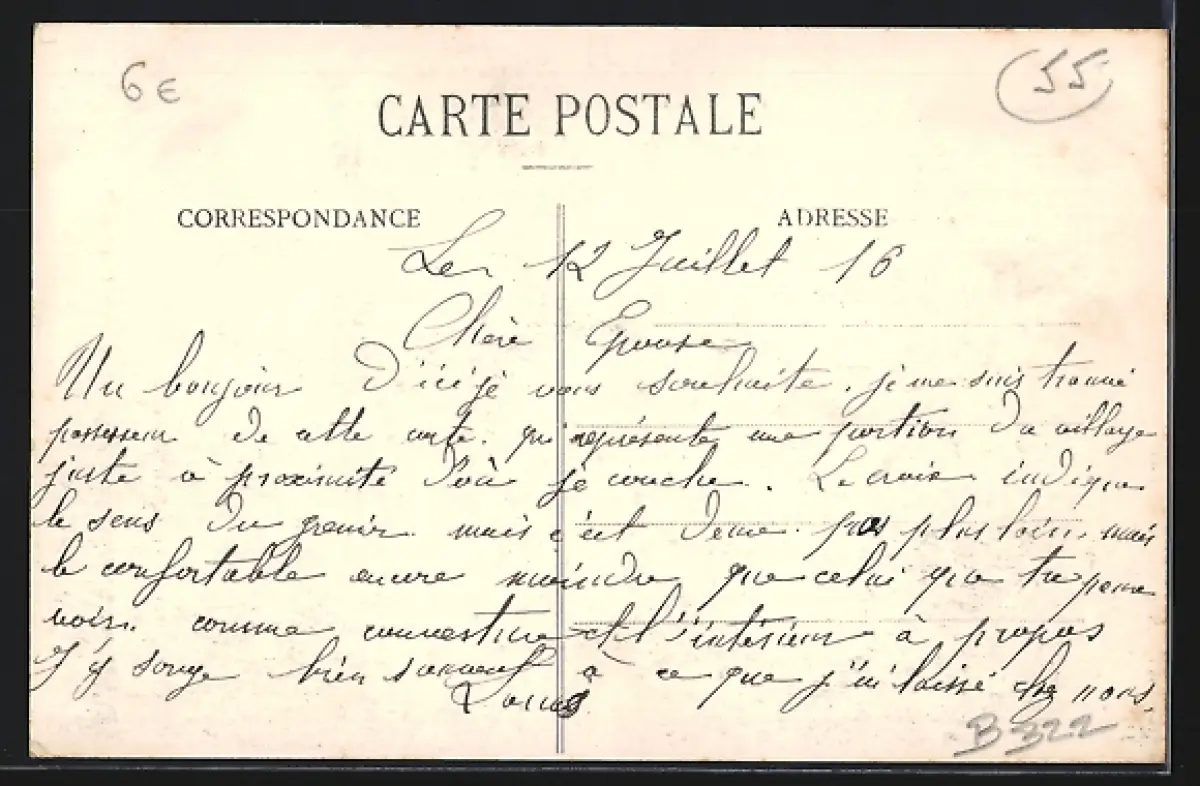 6€
55
CARTE POSTALE
CORRESPONDANCE
ADRESSE
Le 12 Juillet 16
Chère Epouse
Un bonjour d'ici je vous souhaite. je me suis trouvé
possesseur de cette carte. qui représente une portion du village
juste à proximité d'où je couche. La croix indique
le sens du grenier mais c'est pas plus loin, mais
le confortable encore moindre que celui que tu peux
voir. comme couverture et l'intérieur à propos
J'y songe bien souvent à ce que j'ai laissé chez nous.
B 322